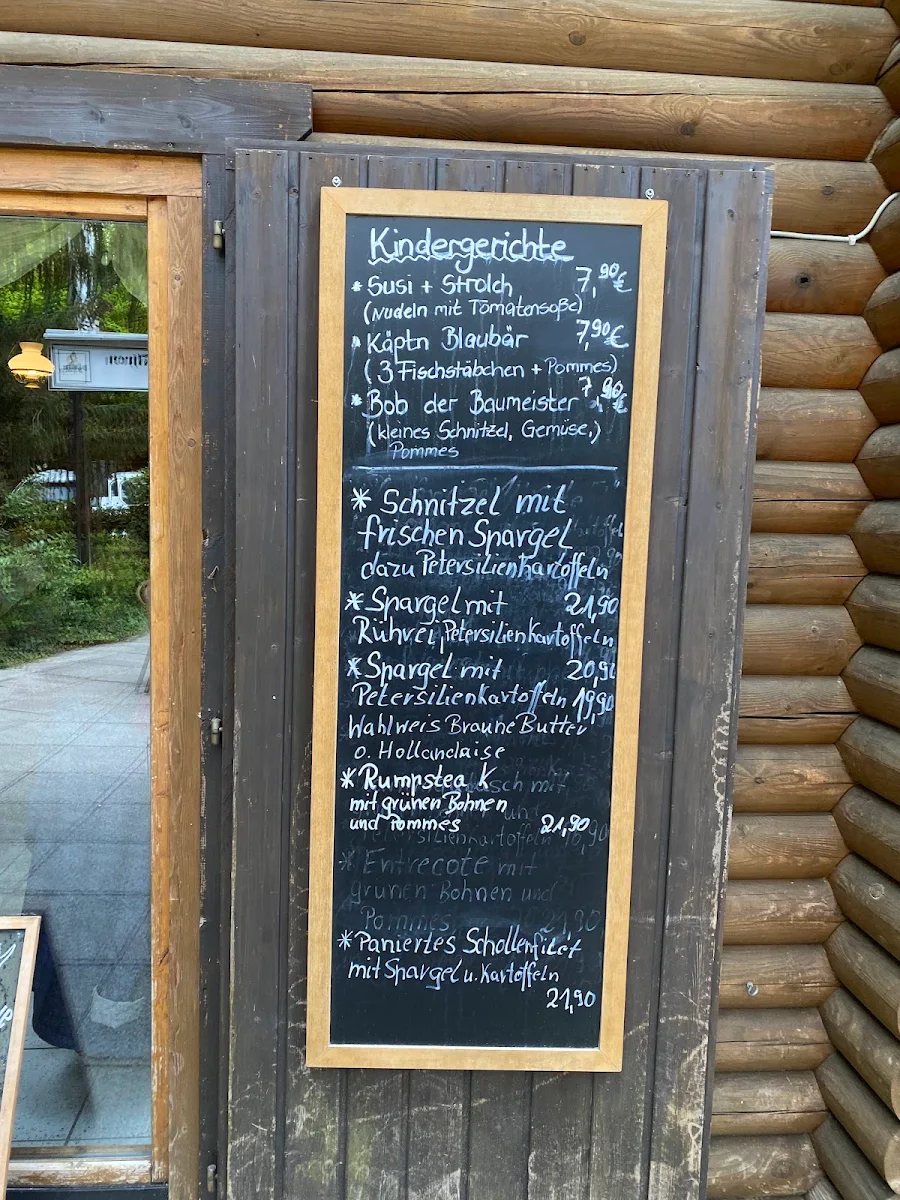 Kindergerichte
* Susi + Strolch 7,90€
(Nudeln mit Tomatensoße)
* Käptn Blaubär 7,90€
(3 Fischstäbchen + Pommes)
* Bob der Baumeister 7,90€
(kleines Schnitzel, Gemüse,)
Pommes
* Schnitzel mit
frischen Spargel
dazu Petersilienkartoffeln
* Spargel mit 21,90
Rührei, Petersilienkartoffeln
* Spargel mit 20,90
Petersilienkartoffeln 19,90
Wahlweis Braune Butter
o. Hollandaise
* Rumpsteak
mit grünen Bohnen
und Pommes 21,90
* Entrecote mit
grünen Bohnen und
Pommes 21,90
* Paniertes Schollenfilet
mit Spargel u. Kartoffeln
21,90